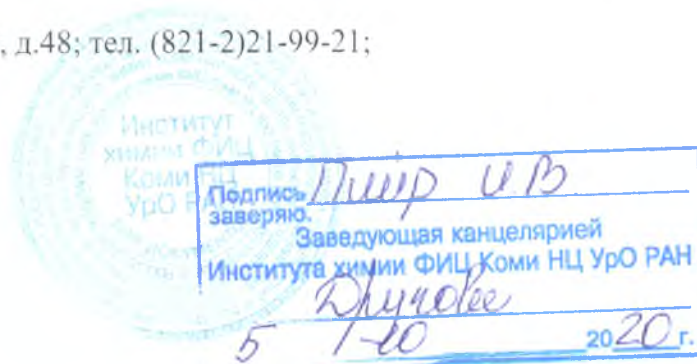 , д.48; тел. (821-2)21-99-21;
Институт
химии ФИЦ
Коми НЦ
УрО РАН
Подпись Пийр И.В.
заверяю.
Заведующая канцелярией
Института химии ФИЦ Коми НЦ УрО РАН
5 10 2020 г.